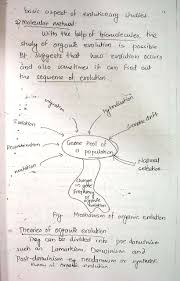 basic aspect of evolutionary studies.
2) Molecular method
With the help of biomolecules, the
study of organic evolution is possible
It suggests that how evolution occurs
and also sometimes it can find out
the sequence of evolution.
migration
hybridisation
Isolation
Genetic drift
Recombination
Gene Pool of
a population
mutation
Natural
selection
changes
in gene
frequency of
organic
evolution
Fig: Mechanism of organic evolution
Theories of organic evolution
They can be divided into pre-darwinism
such as Lamarkism, Darwinism and
Post-darwinism eg neodarwinism or synthetic
theory of organic evolution